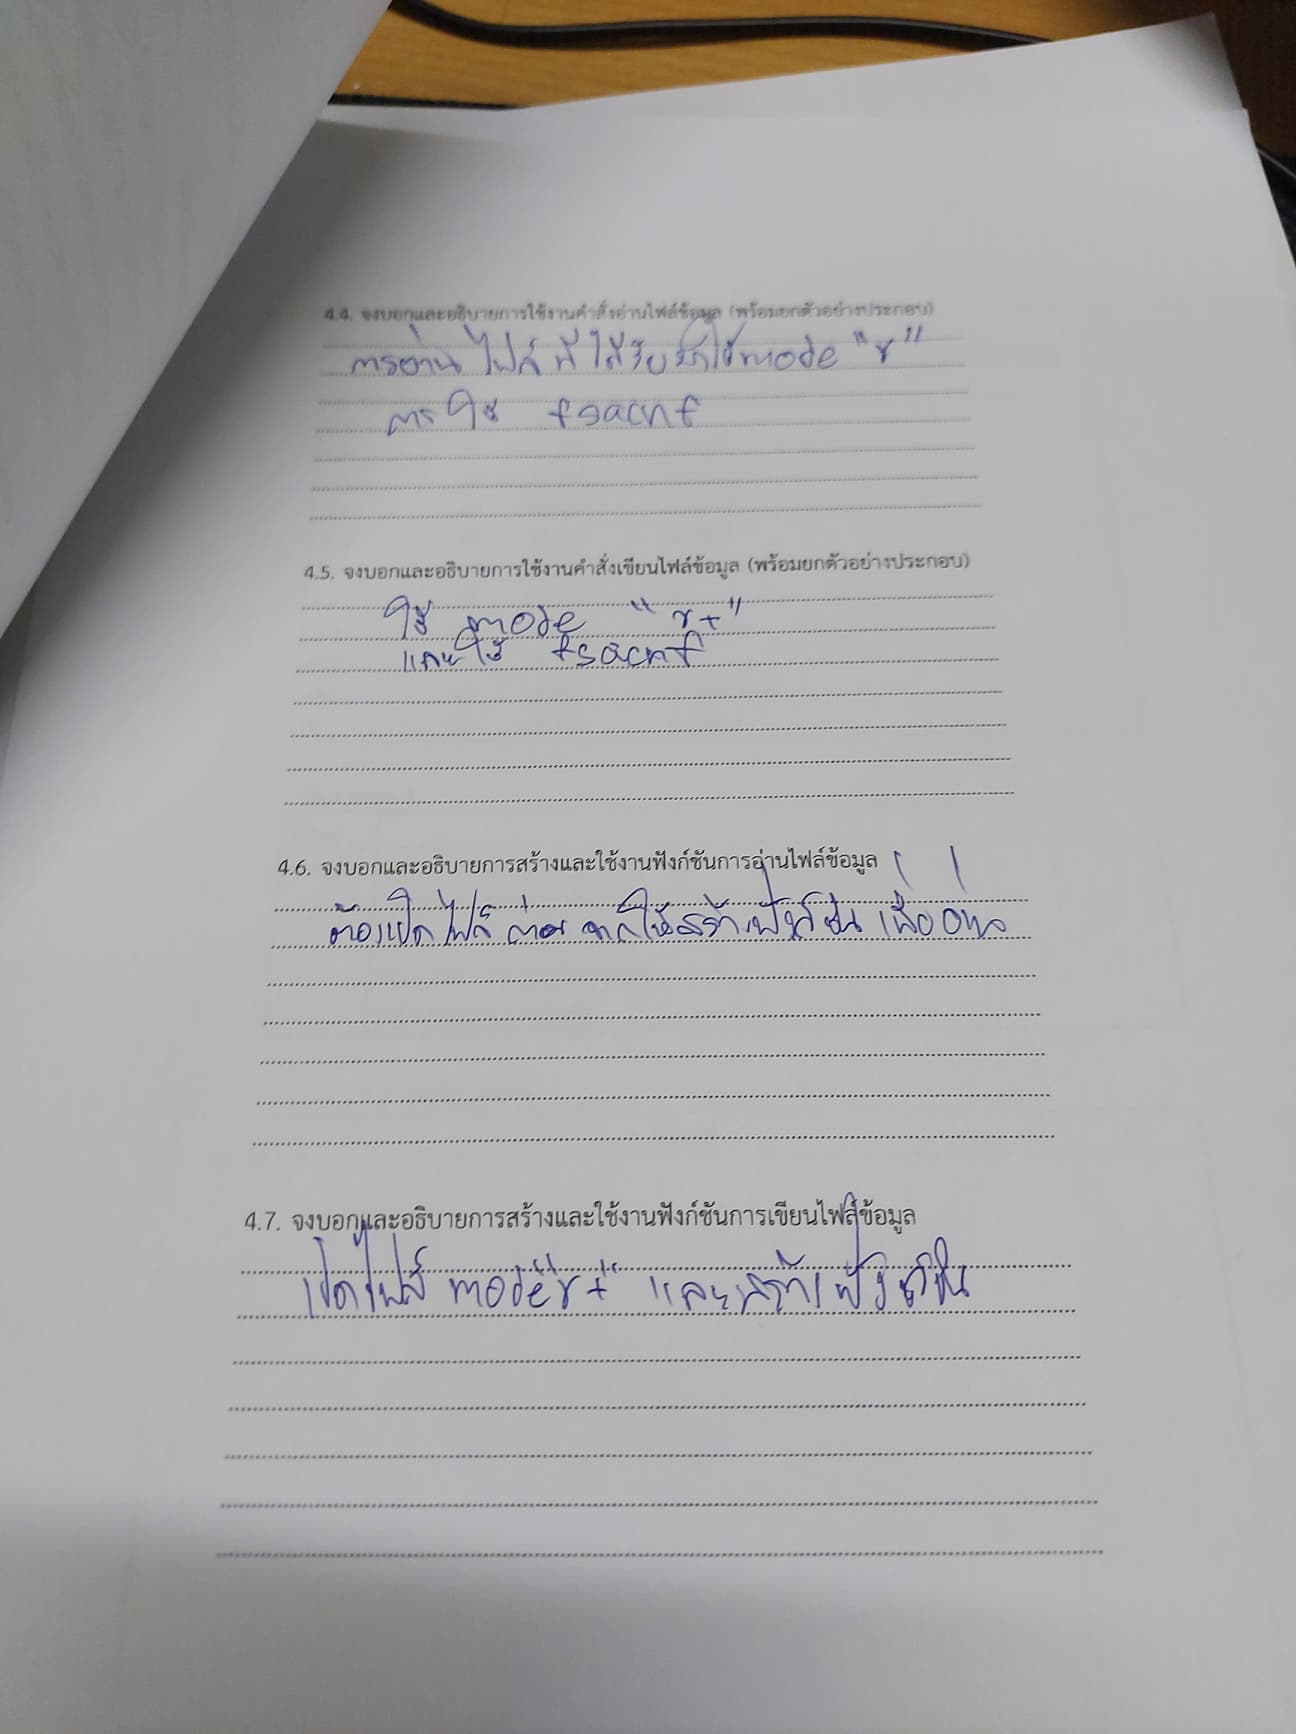 4.4. จงบอกและอธิบายการใช้งานคำสั่งอ่านไฟล์ข้อมูล (พร้อมยกตัวอย่างประกอบ)
การอ่าน ไฟล์ ที่ ได้รับ mode "r"
การ ใช้ fsacnf
4.5. จงบอกและอธิบายการใช้งานคำสั่งเขียนไฟล์ข้อมูล (พร้อมยกตัวอย่างประกอบ)
ใช้ mode "r+"
และใช้ fsacnf
4.6. จงบอกและอธิบายการสร้างและใช้งานฟังก์ชันการอ่านไฟล์ข้อมูล
ต้องเปิดไฟล์ก่อน จากให้สร้างฟังก์ชัน เพื่ออ่าน
4.7. จงบอกและอธิบายการสร้างและใช้งานฟังก์ชันการเขียนไฟล์ข้อมูล
เปิดไฟล์ mode"r+" และสร้างฟังก์ชัน